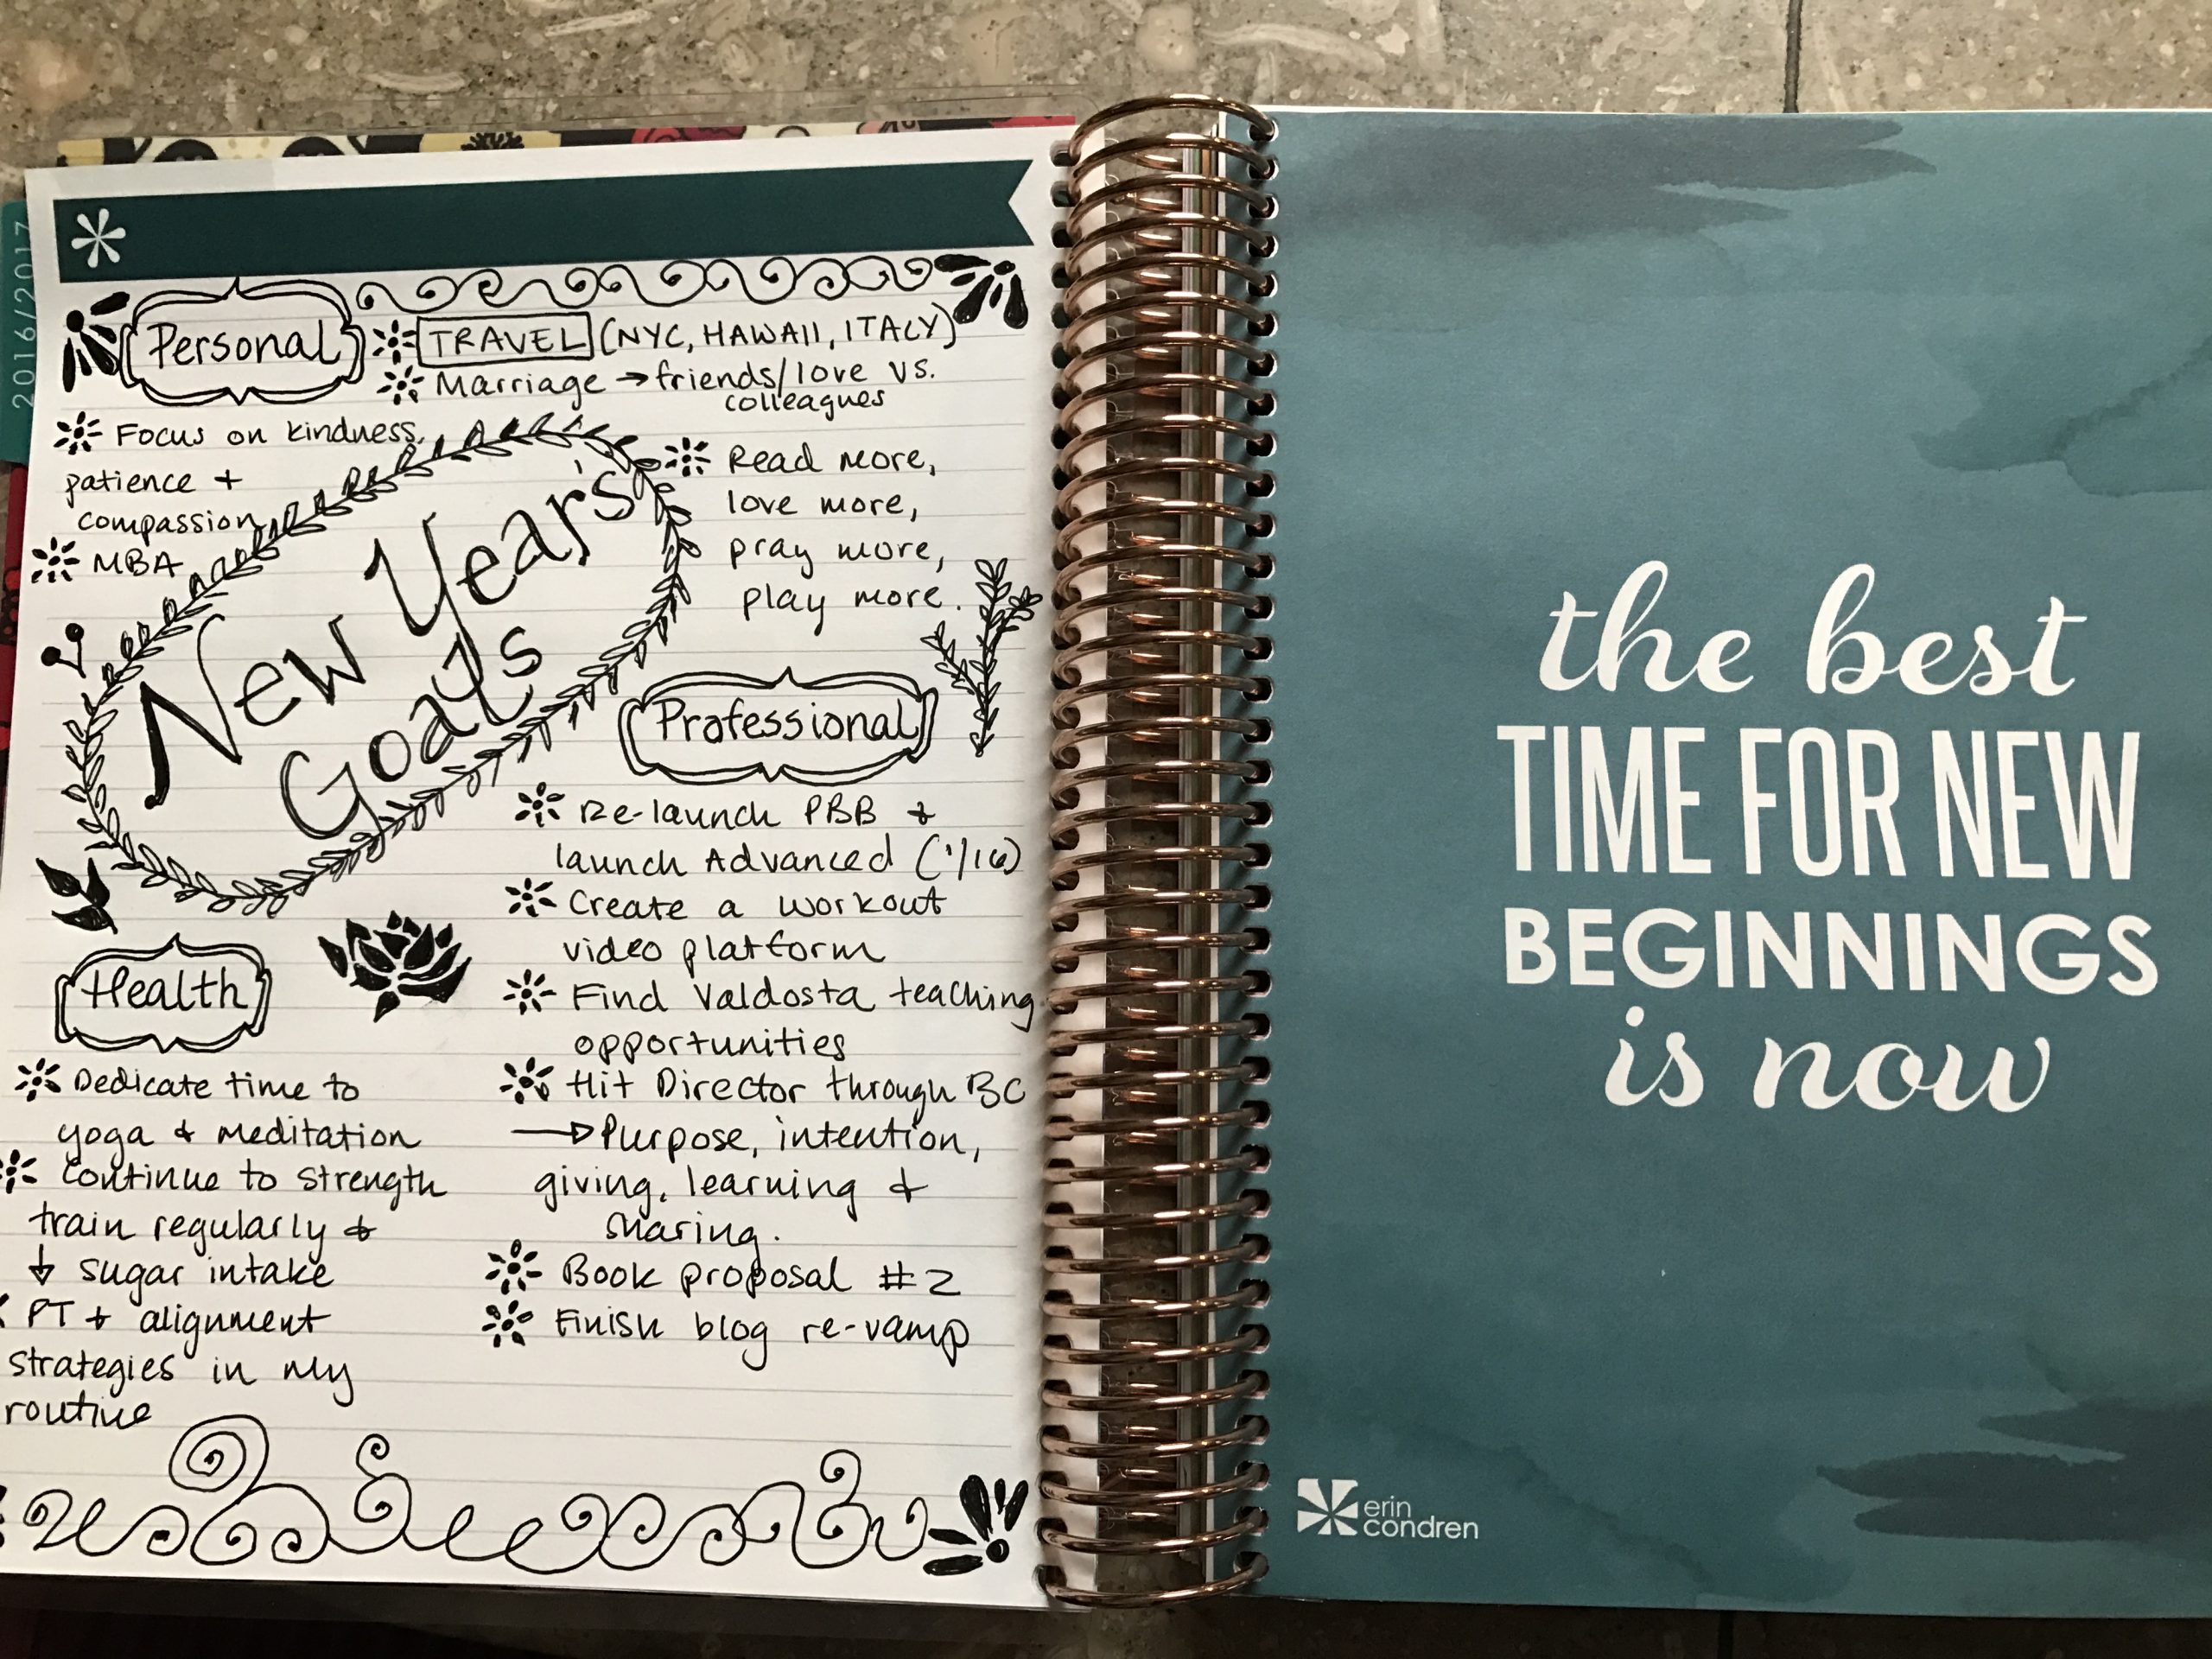 2016/2017
Personal
TRAVEL (NYC, HAWAII, ITALY)
Marriage → friends/love vs.
colleagues
Focus on kindness,
patience +
compassion
MBA
Read more,
love more,
pray more,
play more.
New Year's
Goals
Professional
Re-launch PBB +
launch Advanced (1/16)
Create a workout
video platform
Find Valdosta teaching
opportunities
Hit Director through BC
→ Purpose, intention,
giving, learning +
sharing.
Book proposal #2
Finish blog re-vamp
Health
Dedicate time to
yoga + meditation
Continue to strength
train regularly +
↓ sugar intake
PT + alignment
strategies in my
routine
the best
TIME FOR NEW
BEGINNINGS
is now
erin
condren